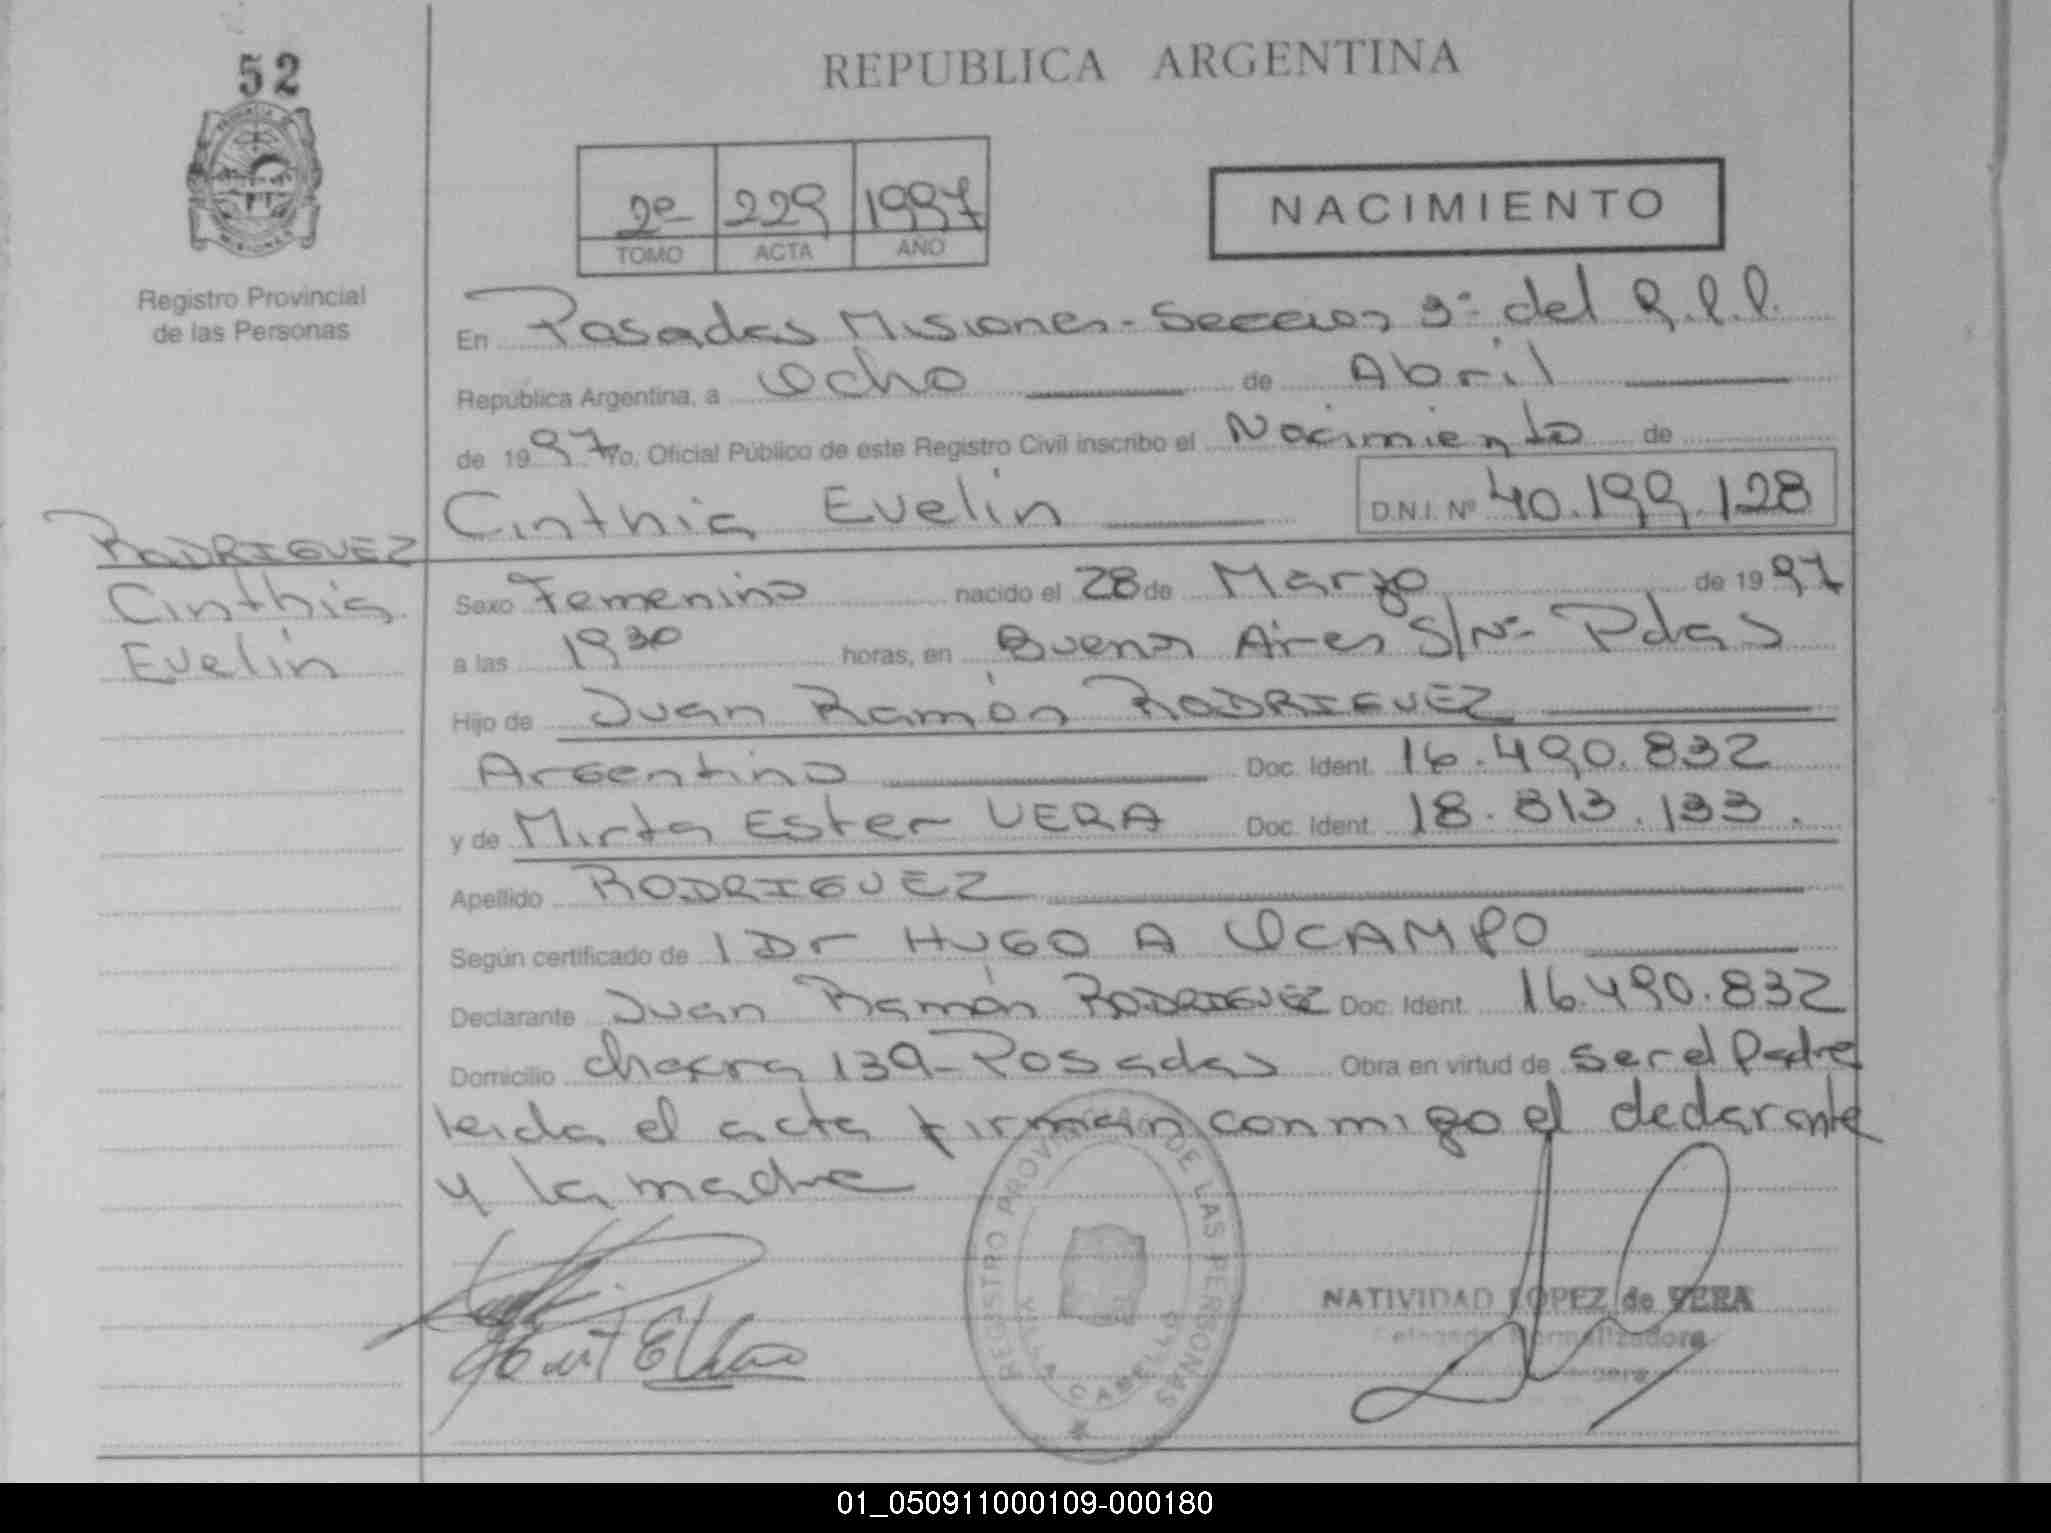 52
REPUBLICA ARGENTINA
2º 229 1997
TOMO ACTA AÑO
NACIMIENTO
Registro Provincial
de las Personas
En Posadas Misiones - Seccion 9º del R.P.P.
República Argentina, a Ocho de Abril
de 1997 Yo, Oficial Público de este Registro Civil inscribo el Nacimiento de
Cinthia Evelin D.N.I. Nº 40.199.128
RODRIGUEZ
Cinthia
Evelin
Sexo Femenino nacido el 28 de Marzo de 1997
a las 19 30 horas, en Buenos Aires S/Nº Pdas
Hijo de Juan Ramón RODRIGUEZ
Argentino Doc. Ident. 16.490.832
y de Mirta Ester VERA Doc. Ident. 18.813.133.
Apellido RODRIGUEZ
Según certificado de 1 Dr HUGO A OCAMPO
Declarante Juan Ramón RODRIGUEZ Doc. Ident. 16.490.832
Domicilio chacra 139 - Posadas Obra en virtud de ser el Padre
leida el acta firman conmigo el declarante
y la madre
REGISTRO PROVINCIAL DE LAS PERSONAS
VILLA CABELLO
NATIVIDAD LOPEZ de VERA
Delegada Normalizadora
01_050911000109-000180